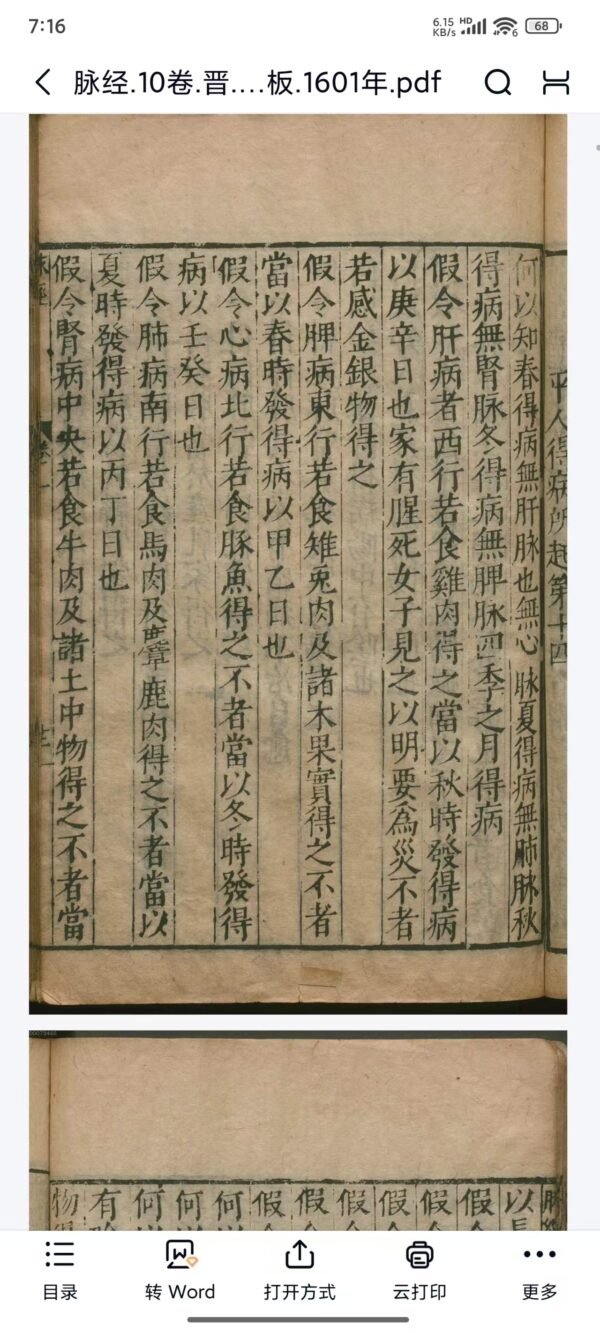 7:16
6.15 KB/s
HD
6
68
脉经.10卷.晋....板.1601年.pdf
平人得病所起第十四
何以知春得病無肝脉也無心脉夏得病無肺脉秋
得病無腎脉冬得病無脾脉四季之月得病
假令肝病者西行若食雞肉得之當以秋時發得病
以庚辛日也家有腥死女子見之以明要為災不者
若感金銀物得之
假令脾病東行若食雉兎肉及諸木果實得之不者
當以春時發得病以甲乙日也
假令心病北行若食豚魚得之不者當以冬時發得
病以壬癸日也
假令肺病南行若食馬肉及麞鹿肉得之不者當以
夏時發得病以丙丁日也
假令腎病中央若食牛肉及諸土中物得之不者當
脉經
以長
假令
假令
假令
假令
假令
假
何以
何以
何以
有
物得
目录
转 Word
打开方式
云打印
更多